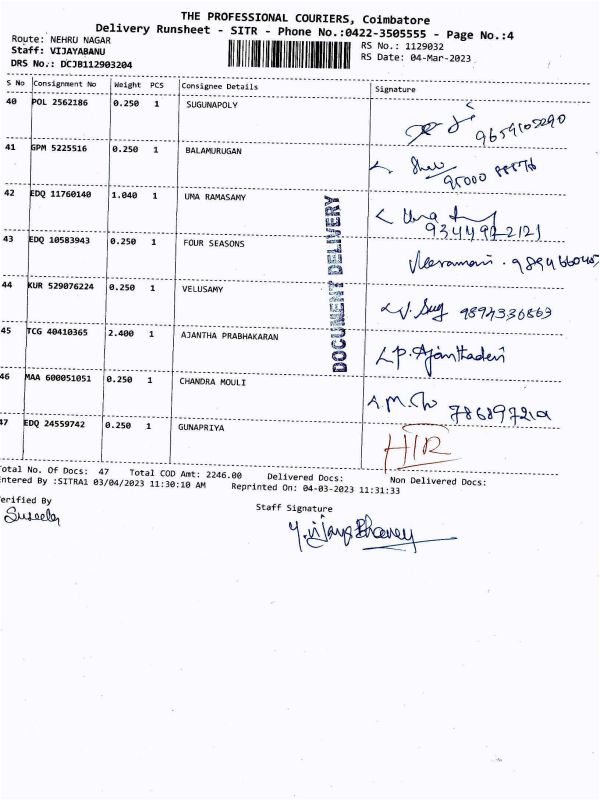 THE PROFESSIONAL COURIERS, Coimbatore
Delivery Runsheet - SITR - Phone No.:0422-3505555 - Page No.:4
Route: NEHRU NAGAR
RS No.: 1129032
Staff: VIJAYABANU
RS Date: 04-Mar-2023
DRS No.: DCJB112903204
S No Consignment No Weight PCS Consignee Details Signature
40 POL 2562186 0.250 1 SUGUNAPOLY
41 GPM 5225516 0.250 1 BALAMURUGAN
95000 88876
42 EDQ 11760140 1.040 1 UMA RAMASAMY
Uma
9344972121
43 EDQ 10583943 0.250 1 FOUR SEASONS
44 KUR 529076224 0.250 1 VELUSAMY
9894336863
45 TCG 40410365 2.400 1 AJANTHA PRABHAKARAN
P. Ajanthadevi
46 MAA 600051051 0.250 1 CHANDRA MOULI
47 EDQ 24559742 0.250 1 GUNAPRIYA
H/R
DOCUMENT DELIVERY
Total No. Of Docs: 47 Total COD Amt: 2246.00 Delivered Docs: Non Delivered Docs:
Entered By :SITRA1 03/04/2023 11:30:10 AM Reprinted On: 04-03-2023 11:31:33
Verified By
Staff Signature